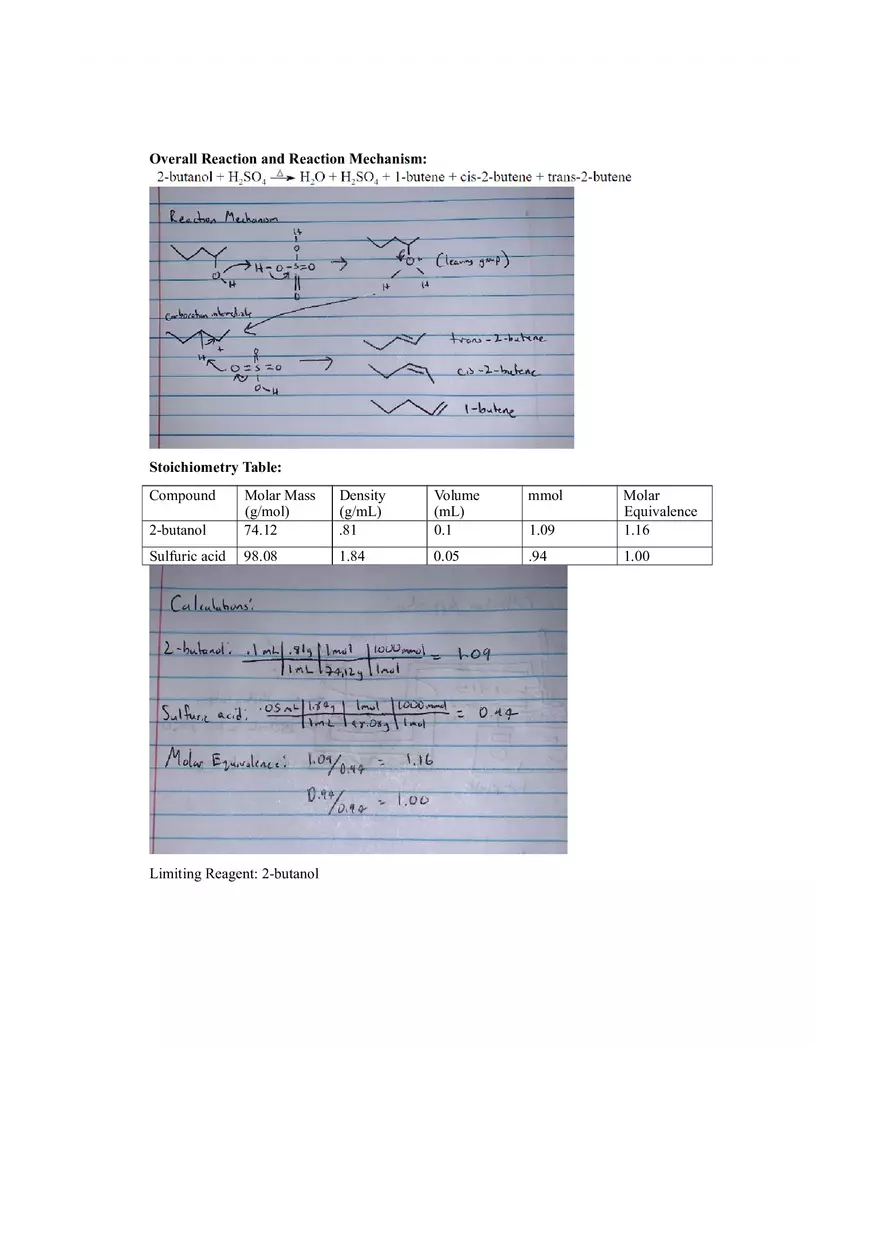 Overall Reaction and Reaction Mechanism:
2-butanol + H₂SO₄ —Δ→ H₂O + H₂SO₄ + 1-butene + cis-2-butene + trans-2-butene
Reaction Mechanism
H
O
H-O-S=O
O
O
H
O+
(leaving group)
H H
carbocation intermediate
+
H
O
O=S=O
O-H
trans-2-butene
cis-2-butene
1-butene
Stoichiometry Table:
Compound Molar Mass (g/mol) Density (g/mL) Volume (mL) mmol Molar Equivalence
2-butanol 74.12 .81 0.1 1.09 1.16
Sulfuric acid 98.08 1.84 0.05 .94 1.00
Calculations:
2-butanol: .1 mL | .81g | 1mol | 1000 mmol = 1.09
1mL | 74.12g | 1mol
Sulfuric acid: .05 mL | 1.84g | 1mol | 1000 mmol = 0.94
1mL | 98.08g | 1mol
Molar Equivalence: 1.09/0.94 = 1.16
0.94/0.94 = 1.00
Limiting Reagent: 2-butanol